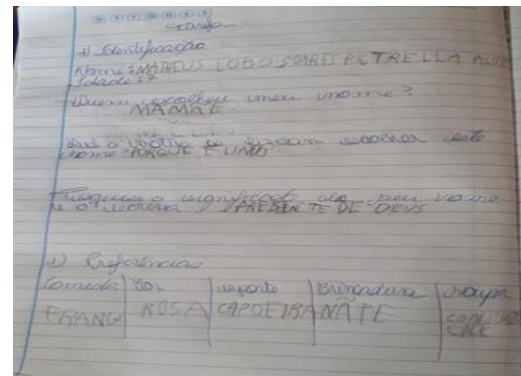 Tarefa
1) Identificação
Nome: MATEUS LOBO SOARES PETRELLA
Idade: 7
Quem escolheu meu nome?
MAMÃE
Qual o motivo escolher este
nome? PORQUE É LINDO
Pesquise o significado do seu nome
e o escreva PRESENTE DE DEUS
Preferências
Comida Cor esporte Brincadeira roupa
FRANGO ROSA CAPOEIRA